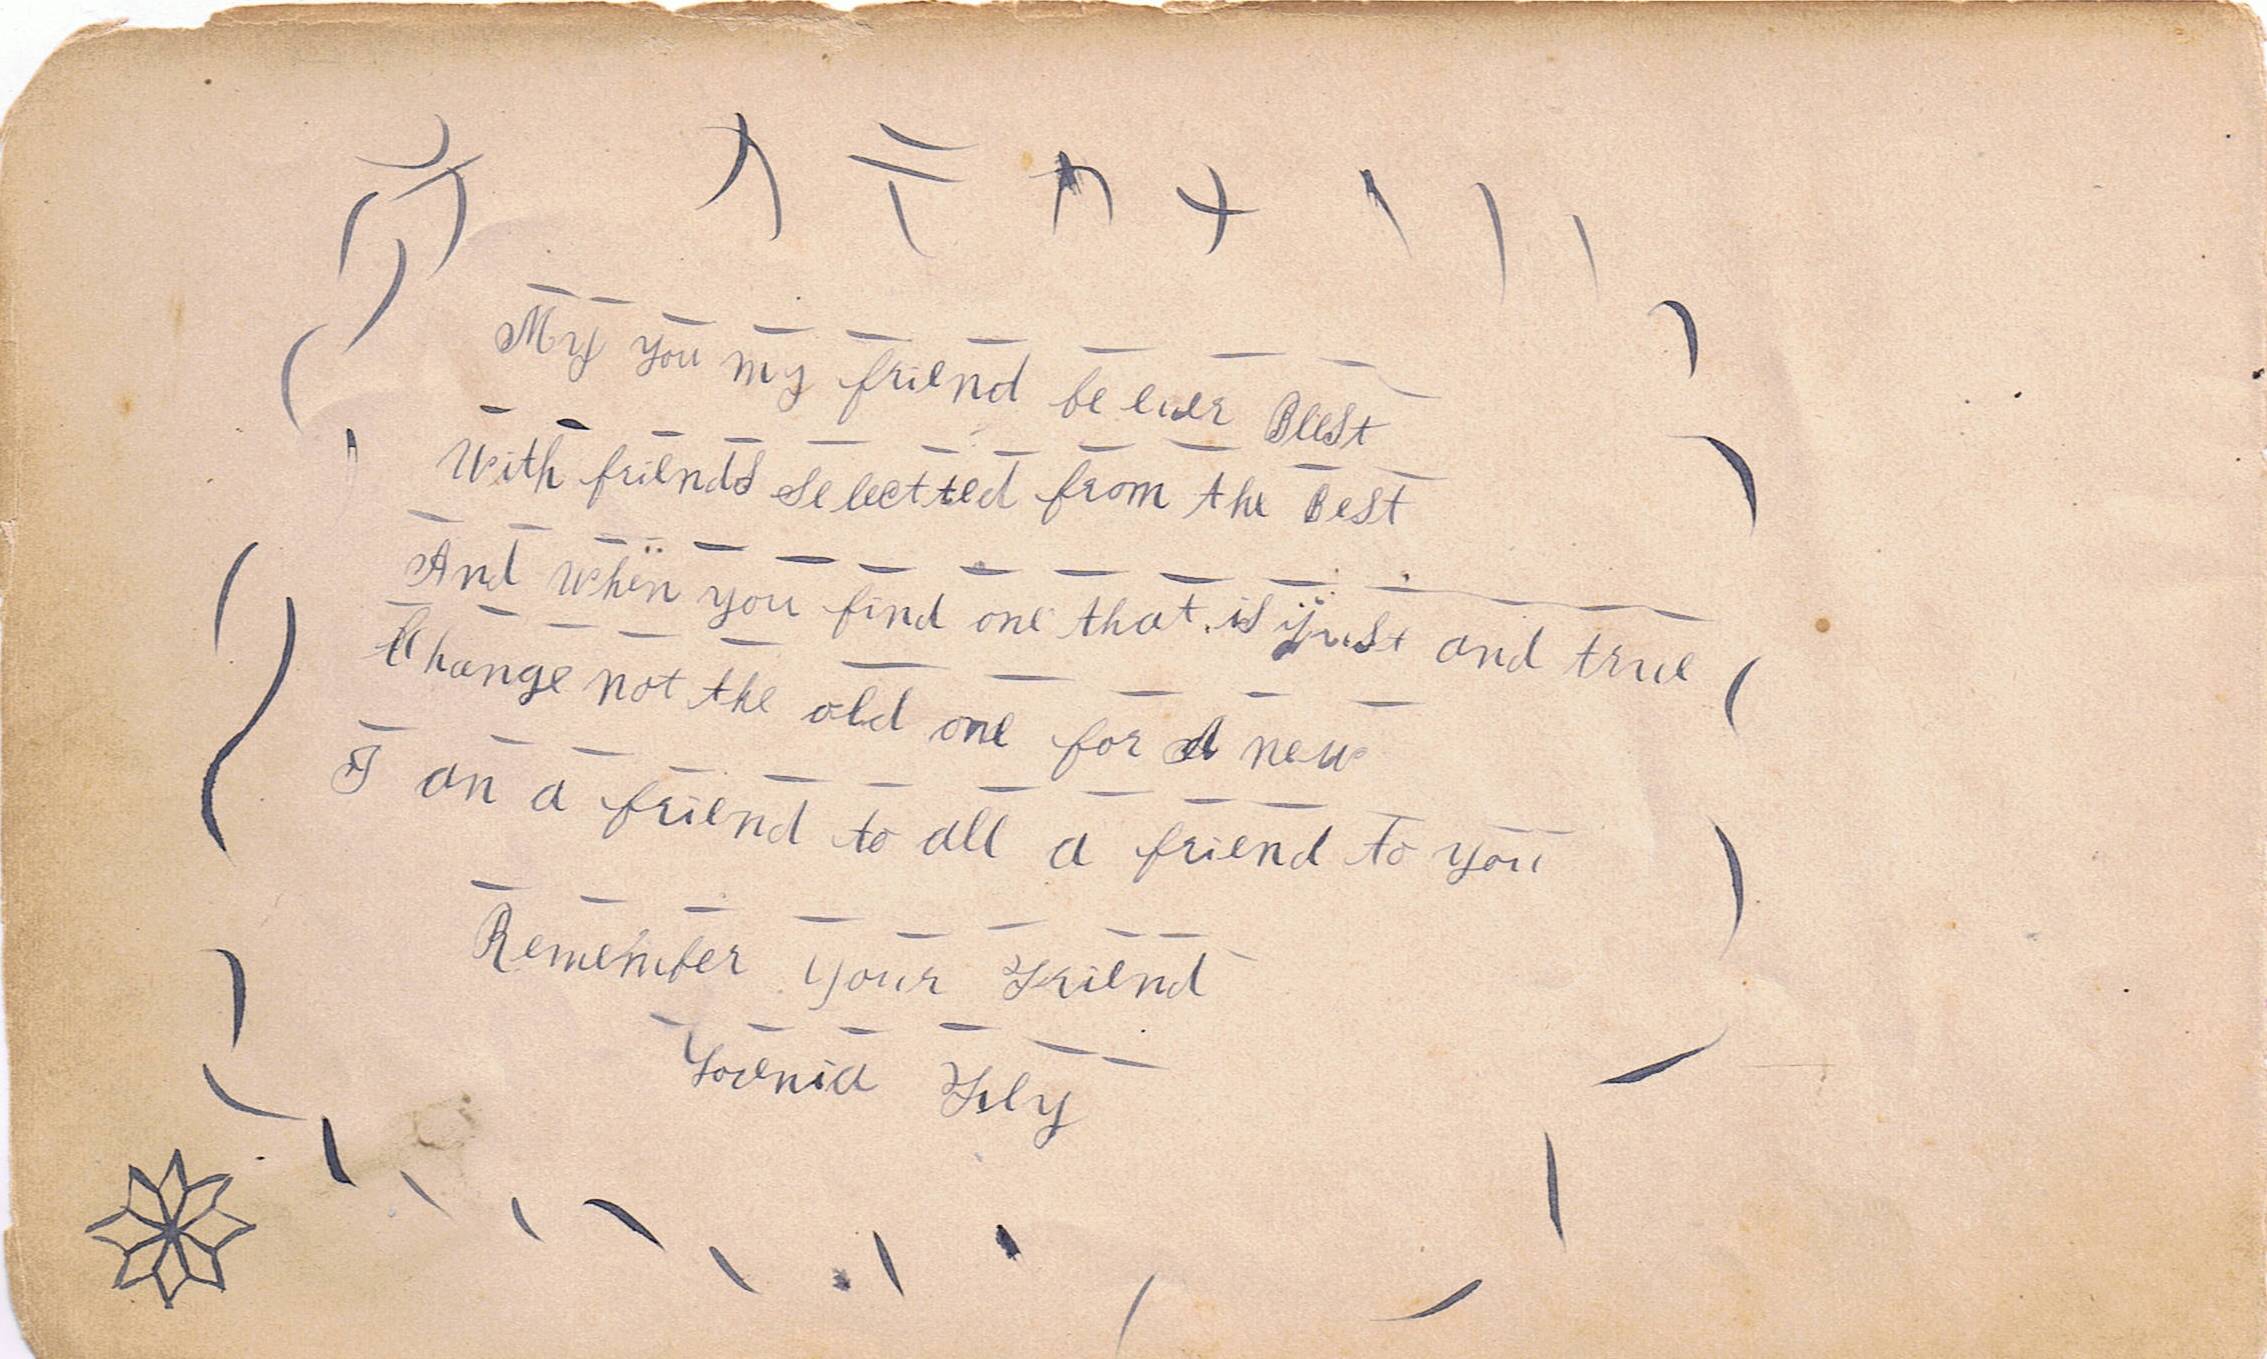 My you my friend be ever Blest
With friends selectted from the Best
And when you find one that is just and true
Change not the old one for A new
I an a friend to all a friend to you
Remember your Friend